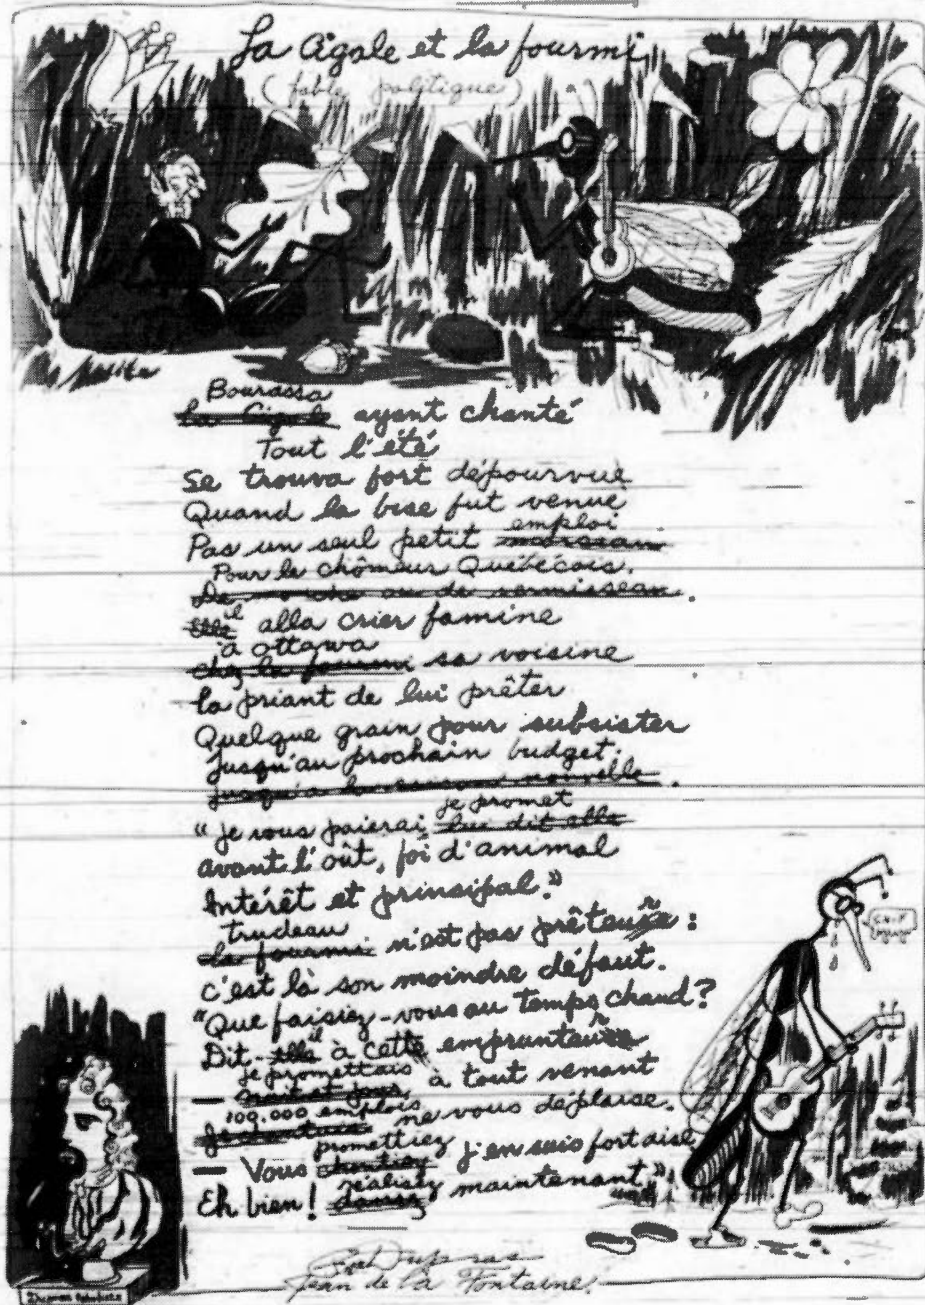 La Cigale et la fourmi
(fable politique)
Bourassa
La Cigale ayant chanté
Tout l'été
se trouva fort dépourvue
Quand la bise fut venue
emploi
Pas un seul petit morceau
Pour le chômeur Québécois.
De mouche ou de vermisseau.
il
Elle alla crier famine
à ottawa
chez la fourmi sa voisine
la priant de lui prêter
Quelque grain pour subsister
Jusqu'au prochain budget.
Jusqu'à la saison nouvelle.
je promet
"je vous paierai lui dit elle
avant l'oût, foi d'animal
Intérêt et prinsipal."
trudeau
la fourmi n'est pas prêteuse r :
c'est là son moindre défaut.
"Que faisiez-vous au temps chaud?
il r
Dit-elle à cette emprunteuse
je promettais
— nuit et jour à tout venant
100.000 emplois
je chantais ne vous déplaise.
promettiez
— Vous chantiez j'en suis fort aise
réalisez
Eh bien! dansez maintenant."
SNIF
Jean de la Fontaine.